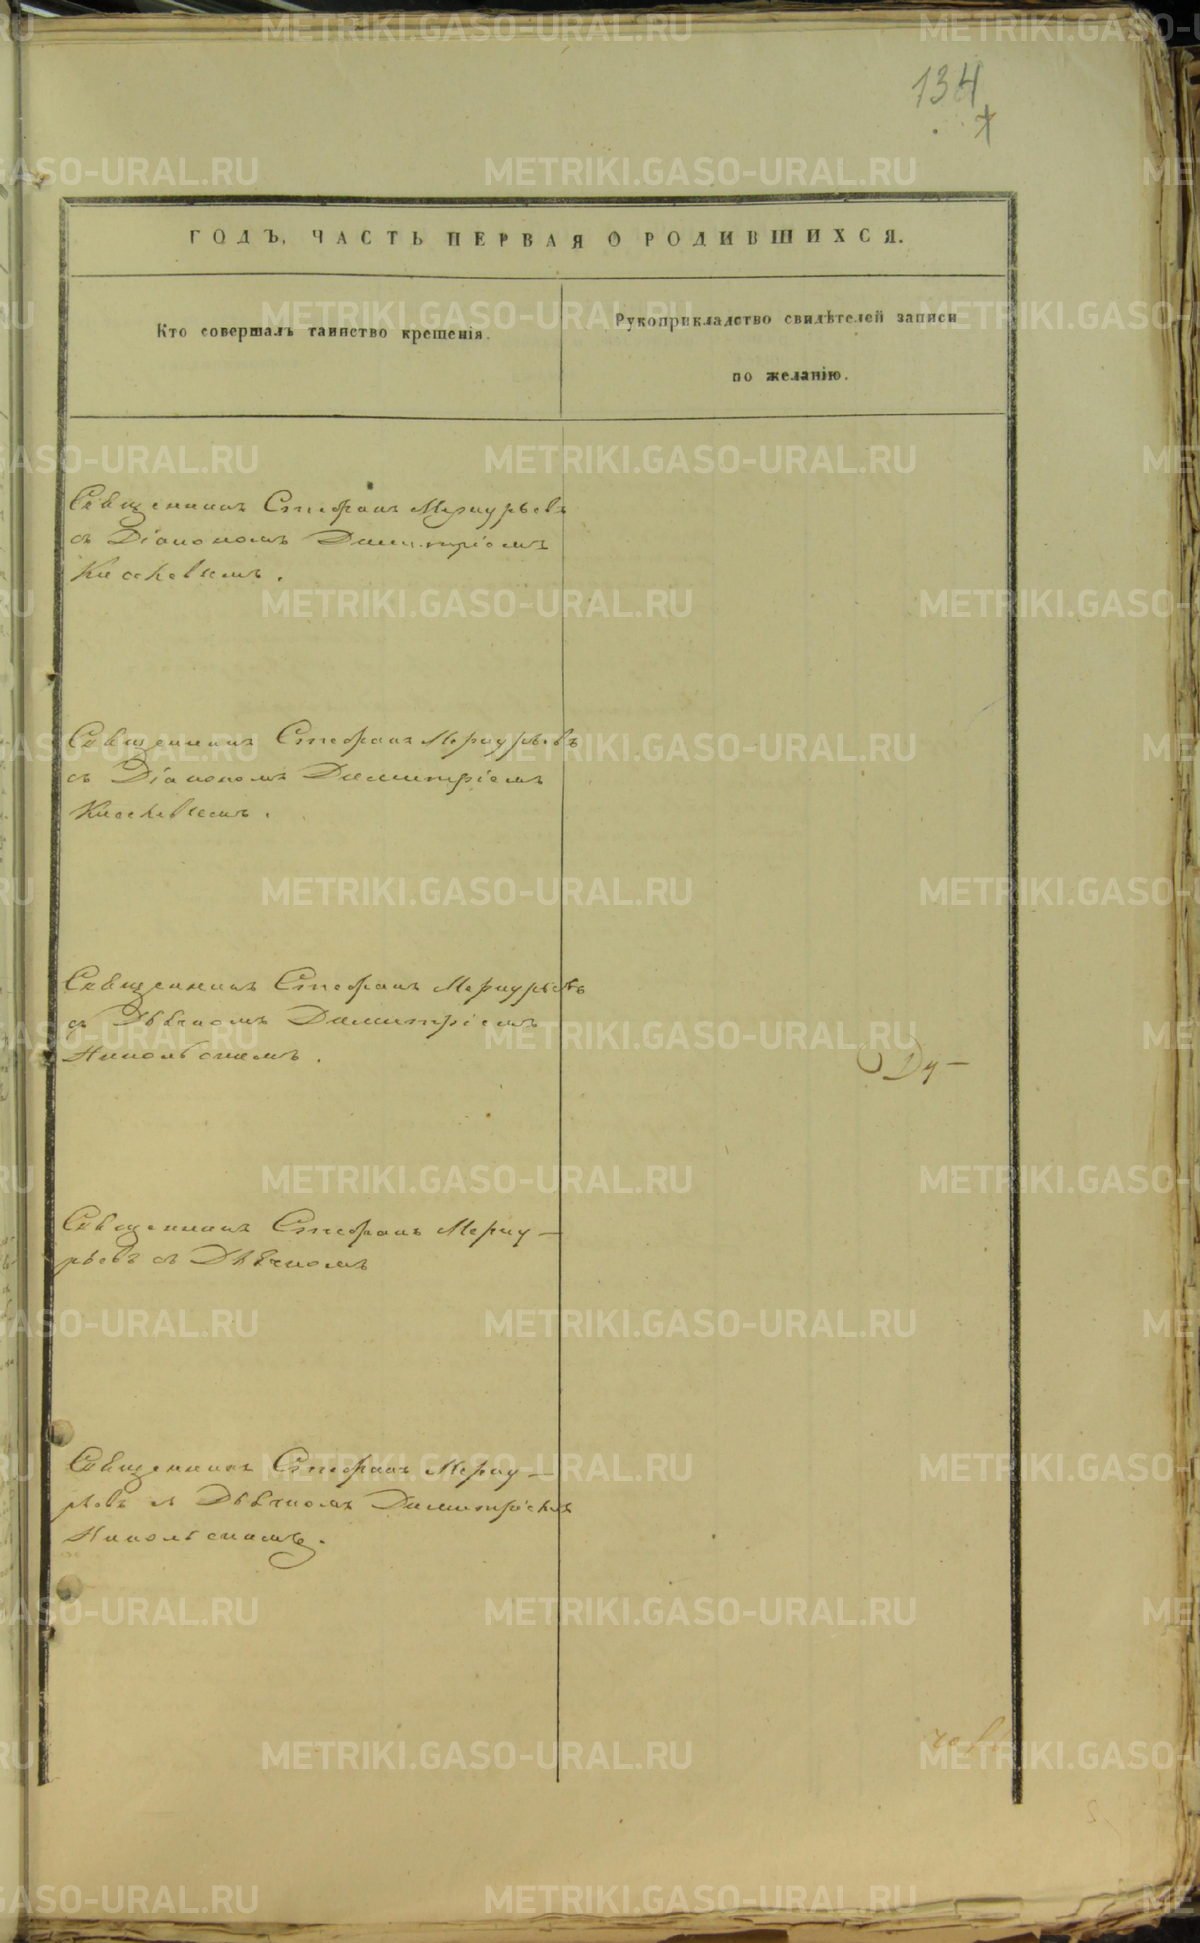 134
ГОДЪ, ЧАСТЬ ПЕРВАЯ О РОДИВШИХСЯ.
Кто совершалъ таинство крещенія.
Рукоприкладство свидѣтелей записи
по желанію.
Священникъ Стефанъ Меркурьевъ
съ Діакономъ Димитріемъ
Священникъ Стефанъ Меркурьевъ
съ Діакономъ Димитріемъ
Священникъ Стефанъ Меркурьевъ
съ Дьячкомъ Димитріемъ
Никольскимъ.
Ду-
Священникъ Стефанъ Мерку-
рьевъ съ Дьячкомъ
Священникъ Стефанъ Мерку-
рьевъ съ Дьячкомъ Димитріемъ
Никольскимъ.
METRIKI.GASO-URAL.RU